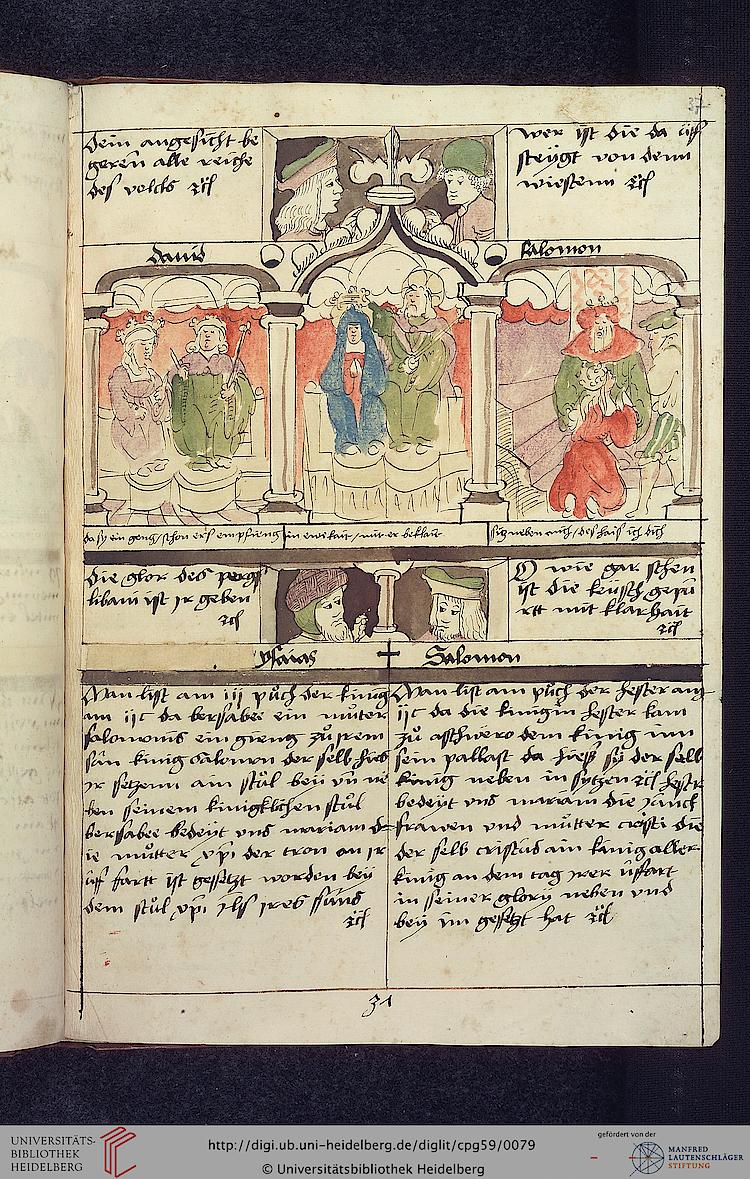 37
Dein angesicht be
geren alle reiche
des volcks rc̃
wer ist die da uff
steygt von denn
wiestenn rc̃
david
salomon
da sy ein geng / schon ers empfieng
in ewikait / mit er beklait
sitz neben mich / des hais ich dich
Die glor des pergs
libani ist ir geben
rc̃
O wie gar schen
ist die keusch gepu
rtt mit klarhait
rc̃
ysaias
Salomon
Man list am iii pùch der kinig
am iic da bersabee ein mùter
salomonis ein gieng zù irem
sùn kinig Salomon der selb hies
ir setzenn ain stùl bey un ne
ben seinem kinigklichen stùl
bersabee bedeyt uns mariam d
ie mùtter xp̃i der tron an ir
ùff fartt ist gesetzt worden bey
dem stùl xp̃i ihs ires suns
rc̃
Man list am pùch der hester am
iic da die kinigin hester kam
zù aschwero dem kinig inn
sein pallast da hiess sy der selb
kinig neben in sytzen rc̃ hester
bedeyt uns mariam die junck
frawen und mùtter cristi die
der selb cristus ain kinig aller
kinig an dem tag irer ùffart
in seiner glory neben und
bey im gesetzt hat rc̃
31
UNIVERSITÄTS-
BIBLIOTHEK
HEIDELBERG
http://digi.ub.uni-heidelberg.de/diglit/cpg59/0079
© Universitätsbibliothek Heidelberg
gefördert von der
MANFRED
LAUTENSCHLÄGER
STIFTUNG